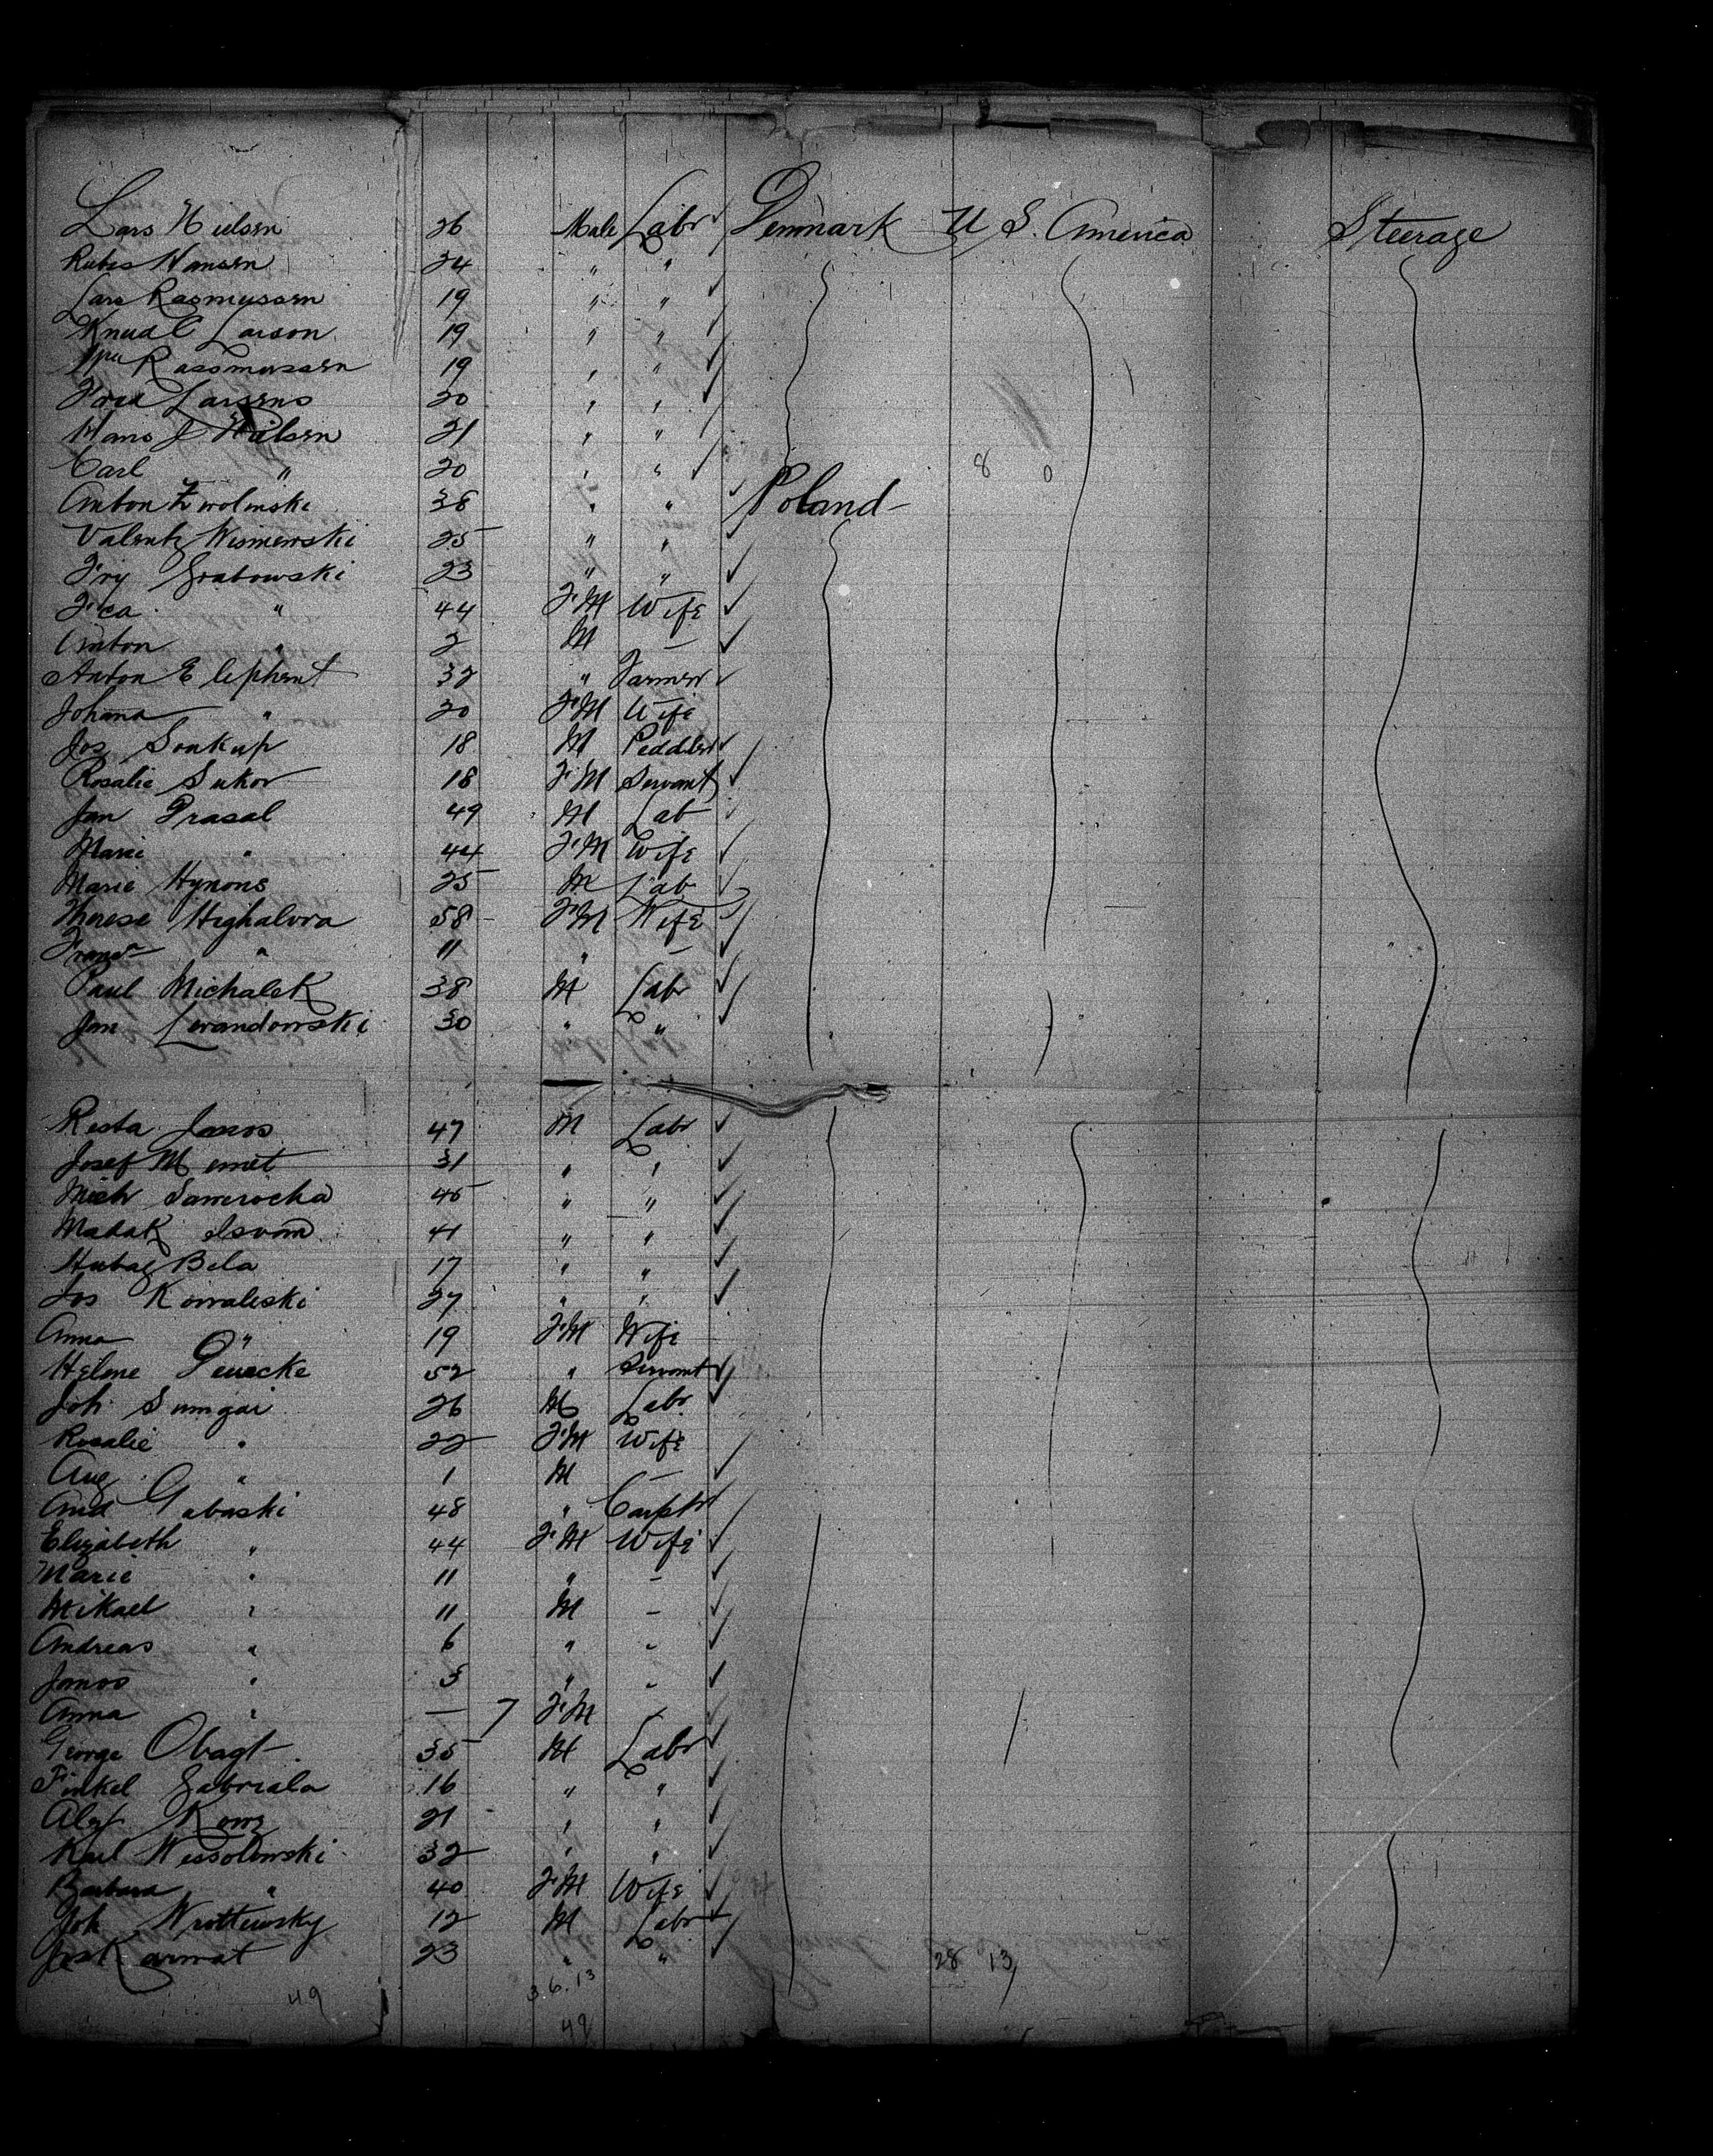 Lars Nielsen 26 Male Labr Denmark U S. America Steerage
Hansen 24 " "
Lars Rasmussen 19 " "
Knud C Larson 19 " "
Rassmussen 19 " "
Larsens 20 " "
Hans J Nielsen 21 " "
Carl " 20 " " 8 0
Anton Zwolinski 38 " " Poland
Valentz Wisniewski 25 " "
Grabowski 23 " "
" 44 F'M Wife
Anton " 2 M —
Anton Elephent 32 " Farmer
Johana " 20 F'M Wife
Jos Soukup 18 M Peddler
Rosalie Sukor 18 F'M Servant
Jan Prasal 49 M Lab
Marie " 44 F'M Wife
Marie Hynons 25 M Lab
Therese Highalova 58 F'M Wife
" 11 " —
Paul Michalek 38 M Labr
Jan Lewandowski 30 " "
Resta Janos 47 M Labr
Josef Memet 31 " "
Mich 45 " "
Madak 41 " "
Bela 17 " "
Jos Kowaleski 27 " "
Anna " 19 F'M Wife
Helene 52 " Servant
Joh Sumgai 26 M Labr
Rosalie " 22 F'M Wife
Aug " 1 M —
And Gabaski 48 " Carptr
Elizabeth " 44 F'M Wife
Marie " 11 " —
Mikael " 11 M —
Andreas " 6 " "
Janos " 3 " "
Anna " — 7 F'M —
George Obagt 35 M Labr
Finkel Gabriala 16 " "
21 " "
Karl Wessolowski 32 " "
Barbara " 40 F'M Wife
Joh Wrottewsky 12 M Labr
Jos Karmat 23 " " 28 13
49 3.6.13
49